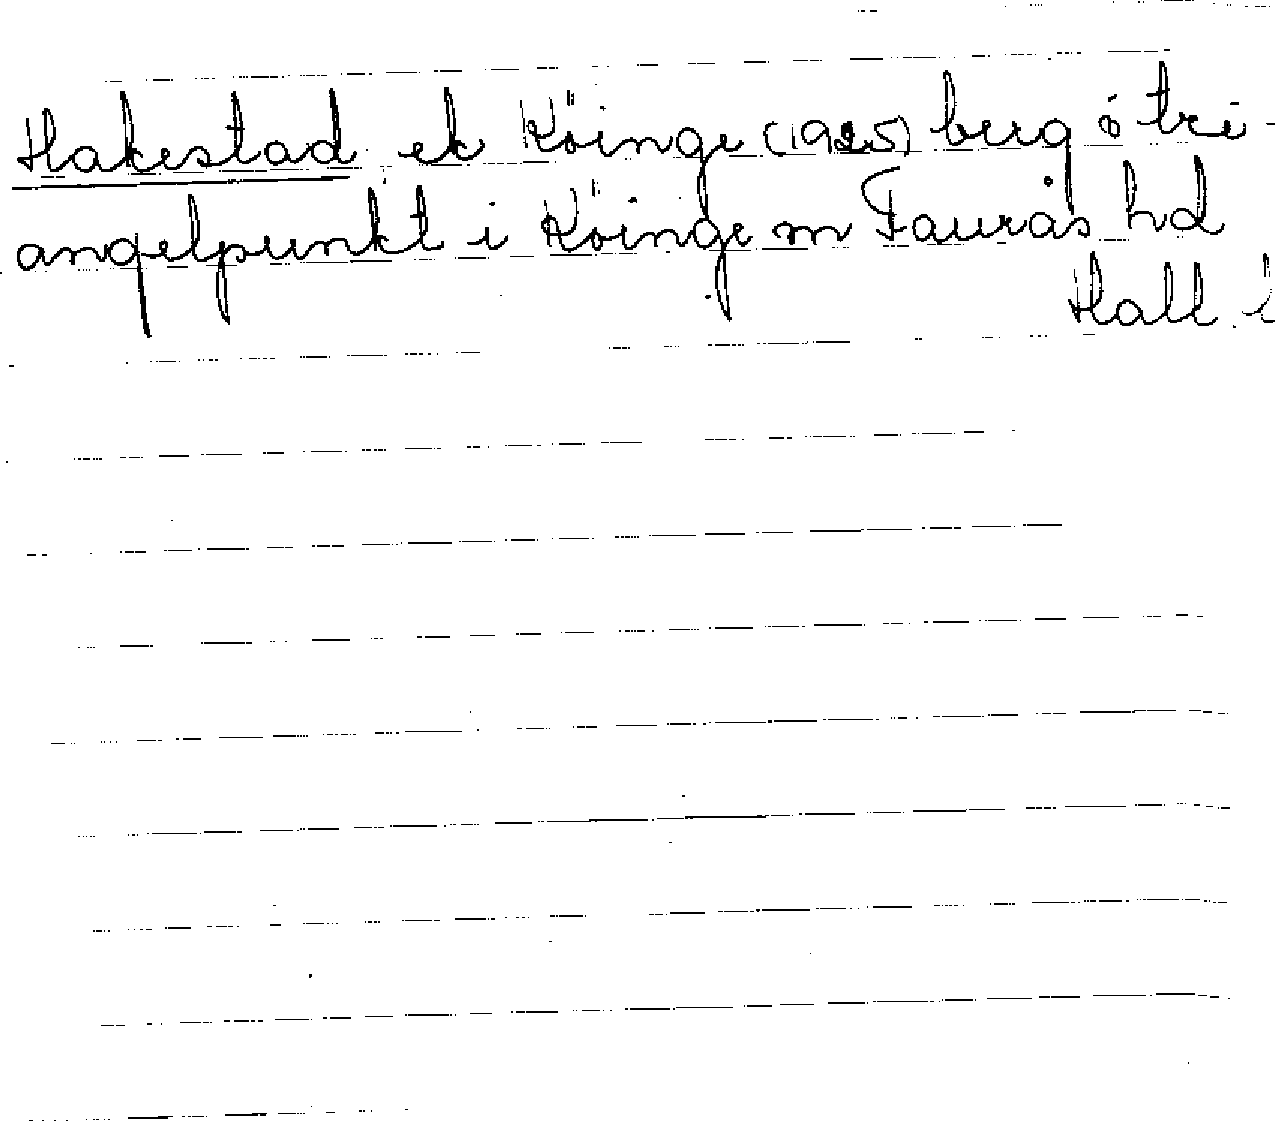 Hakestad ek Köinge (1925) berg o tri-
angelpunkt i Köinge m Faurås hd
Hall. l